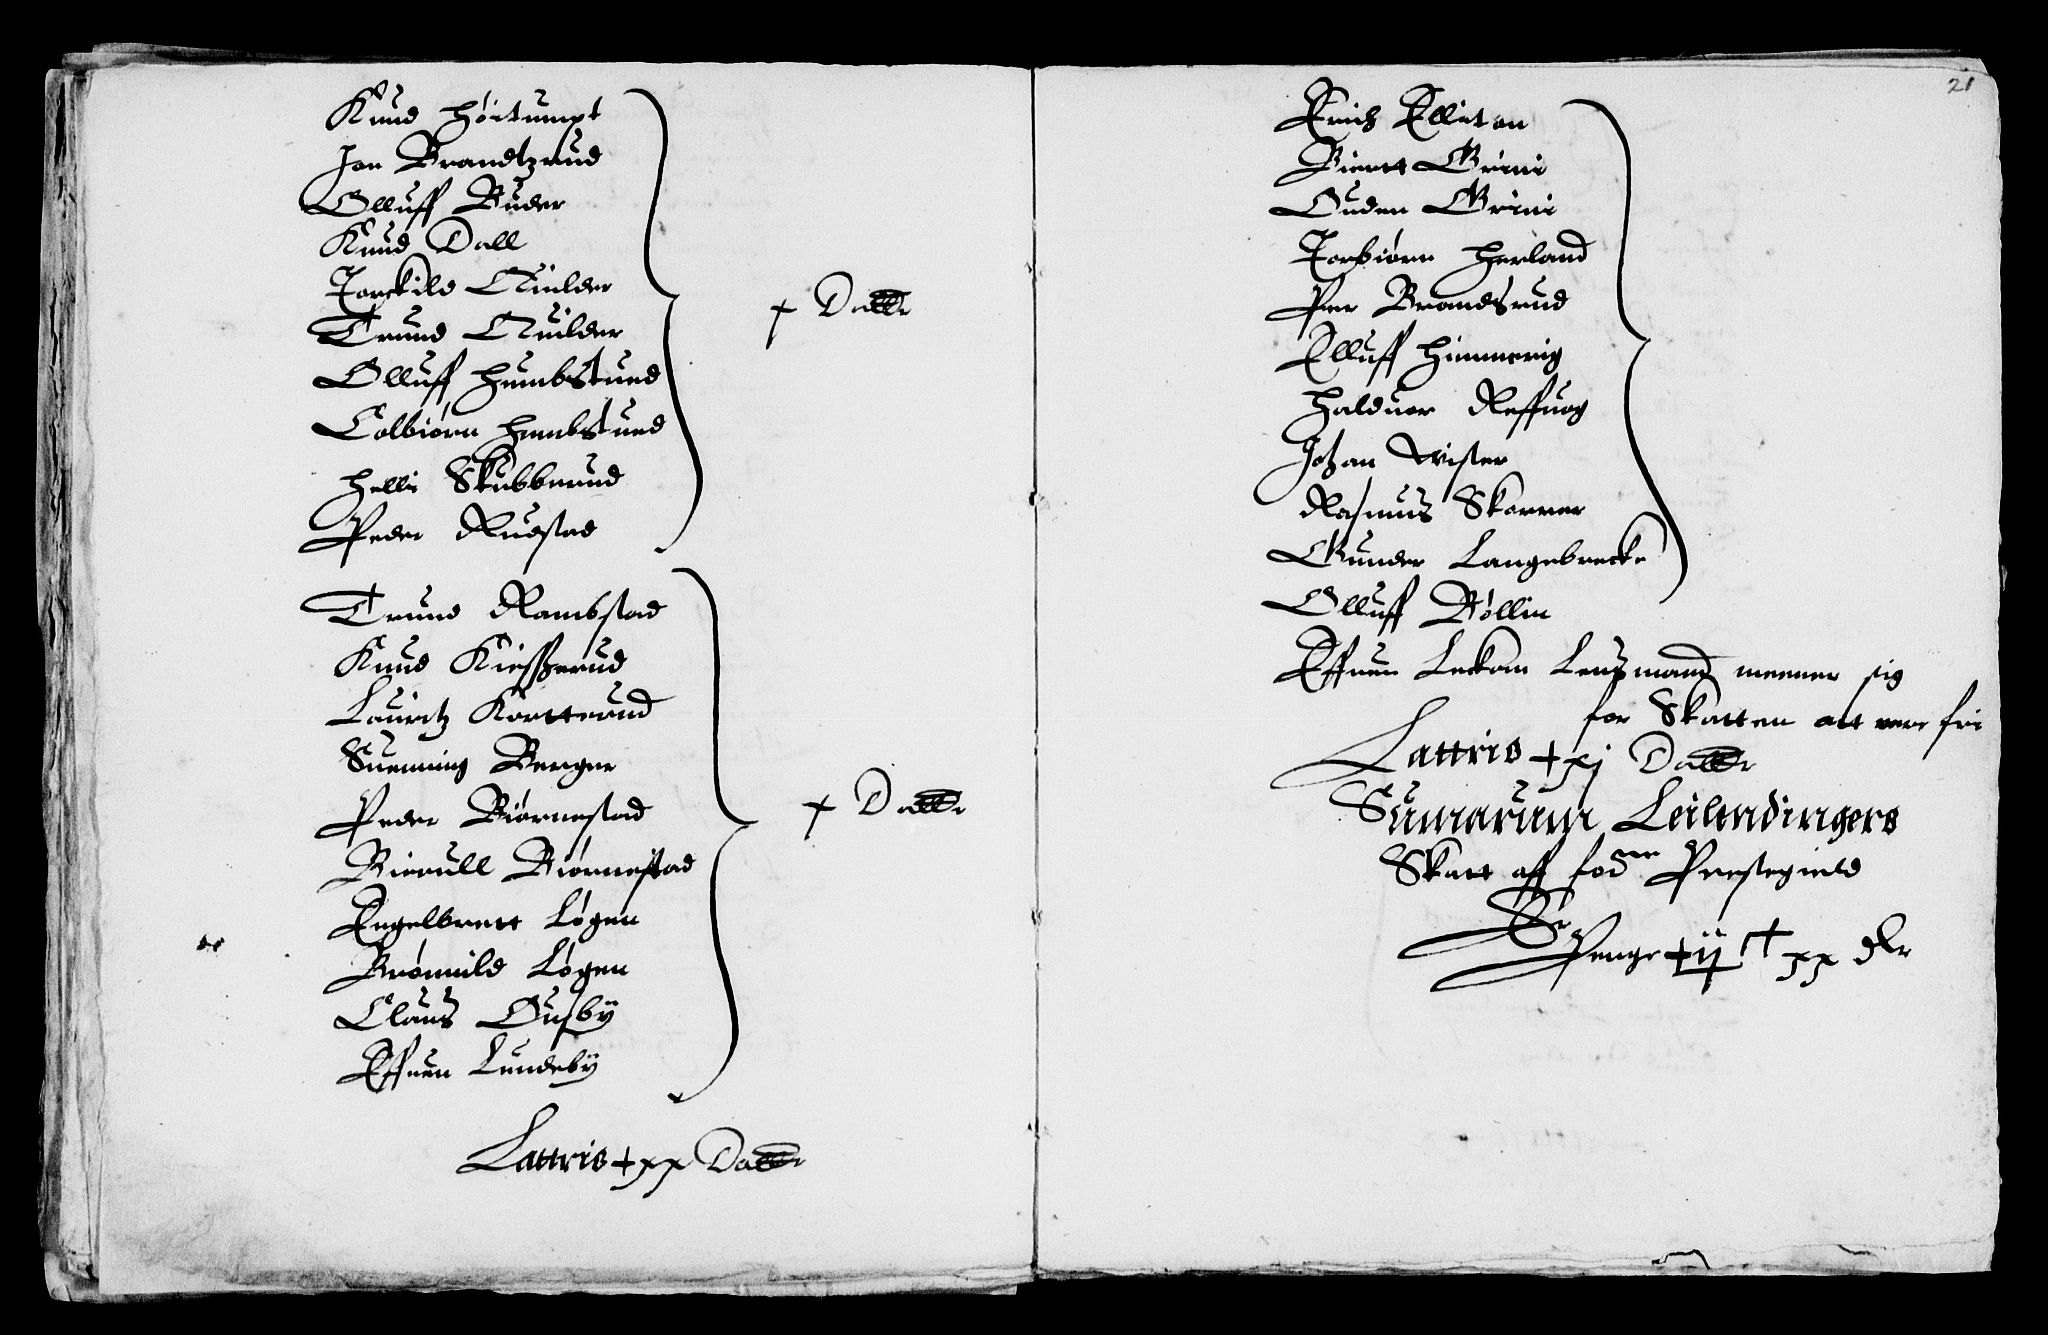 Knud Høitumpt
Jon Brandtzrud
Olluff Buder
Knud Dall
Torckild Nuilder
Trund Nuilder
Olluff Humbstued
Colbiørn Humbstued
Helli Skubberud
Peder Rudstad
x Daller
Trund Rambstad
Knud Kiesszerud
Lauritz Kortterud
Suenning Berger
Peder Biørnestad
Bierull Biørnestad
Engelbrett Løgen
Brømild Løgen
Claus Ousby
Effuen Lundeby
x Daller
Lattris + xx Daller
21
Erich Elletan
Biertt Grini
Ouden Grini
Torbiørn Herland
Per Brandsrud
Elluff Himmerig
Halduor Reffuog
Johan Twister
Rasmus Skarrer
Gunder Langebrecke
Olluff Bøllin
Effuen Leckom Lensmand meener sig
for Skatten att vere fri
Lattris + xj Daller
Sumarum Leilendingers
Skatt aff for.ne Prestegield
Er
Penge + ij c xx dlr